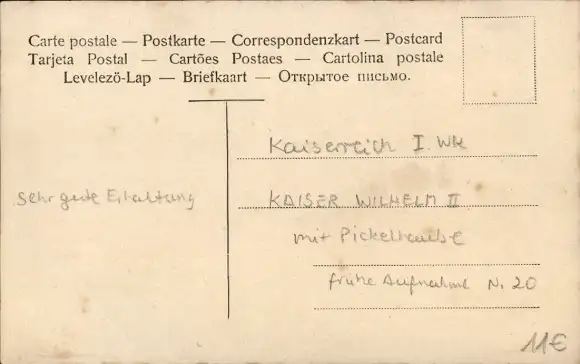 Carte postale — Postkarte — Correspondenzkart — Postcard
Tarjeta Postal — Cartões Postaes — Cartolina postale
Levelezö-Lap — Briefkaart — Открытое письмо.
Kaiserreich I. WK
sehr gute Erhaltung
KAISER WILHELM II
mit Pickelhaube
frühe Aufnahme N. 20
11€